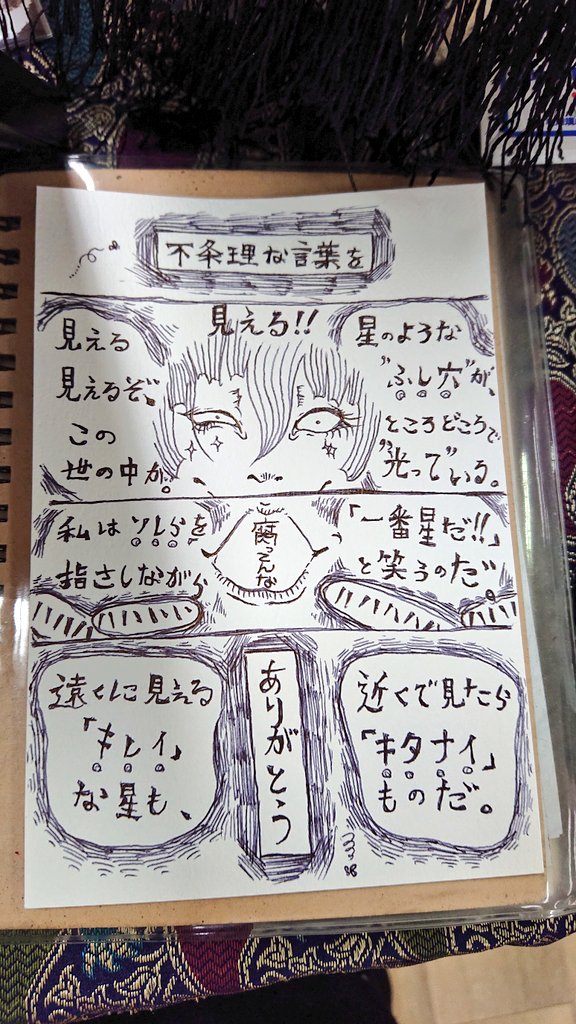 不条理な言葉を
見える
見えるぞ、
この
世の中が。
見える!!
星のような
"ふし穴"が、
ところどころで
"光って"いる。
私はソレらを
指さしながら
腐ってんな
「一番星だ!!」
と笑うのだ。
遠くに見える
「キレイ」
な星も、
ありがとう
近くで見たら
「キタナイ」
ものだ。